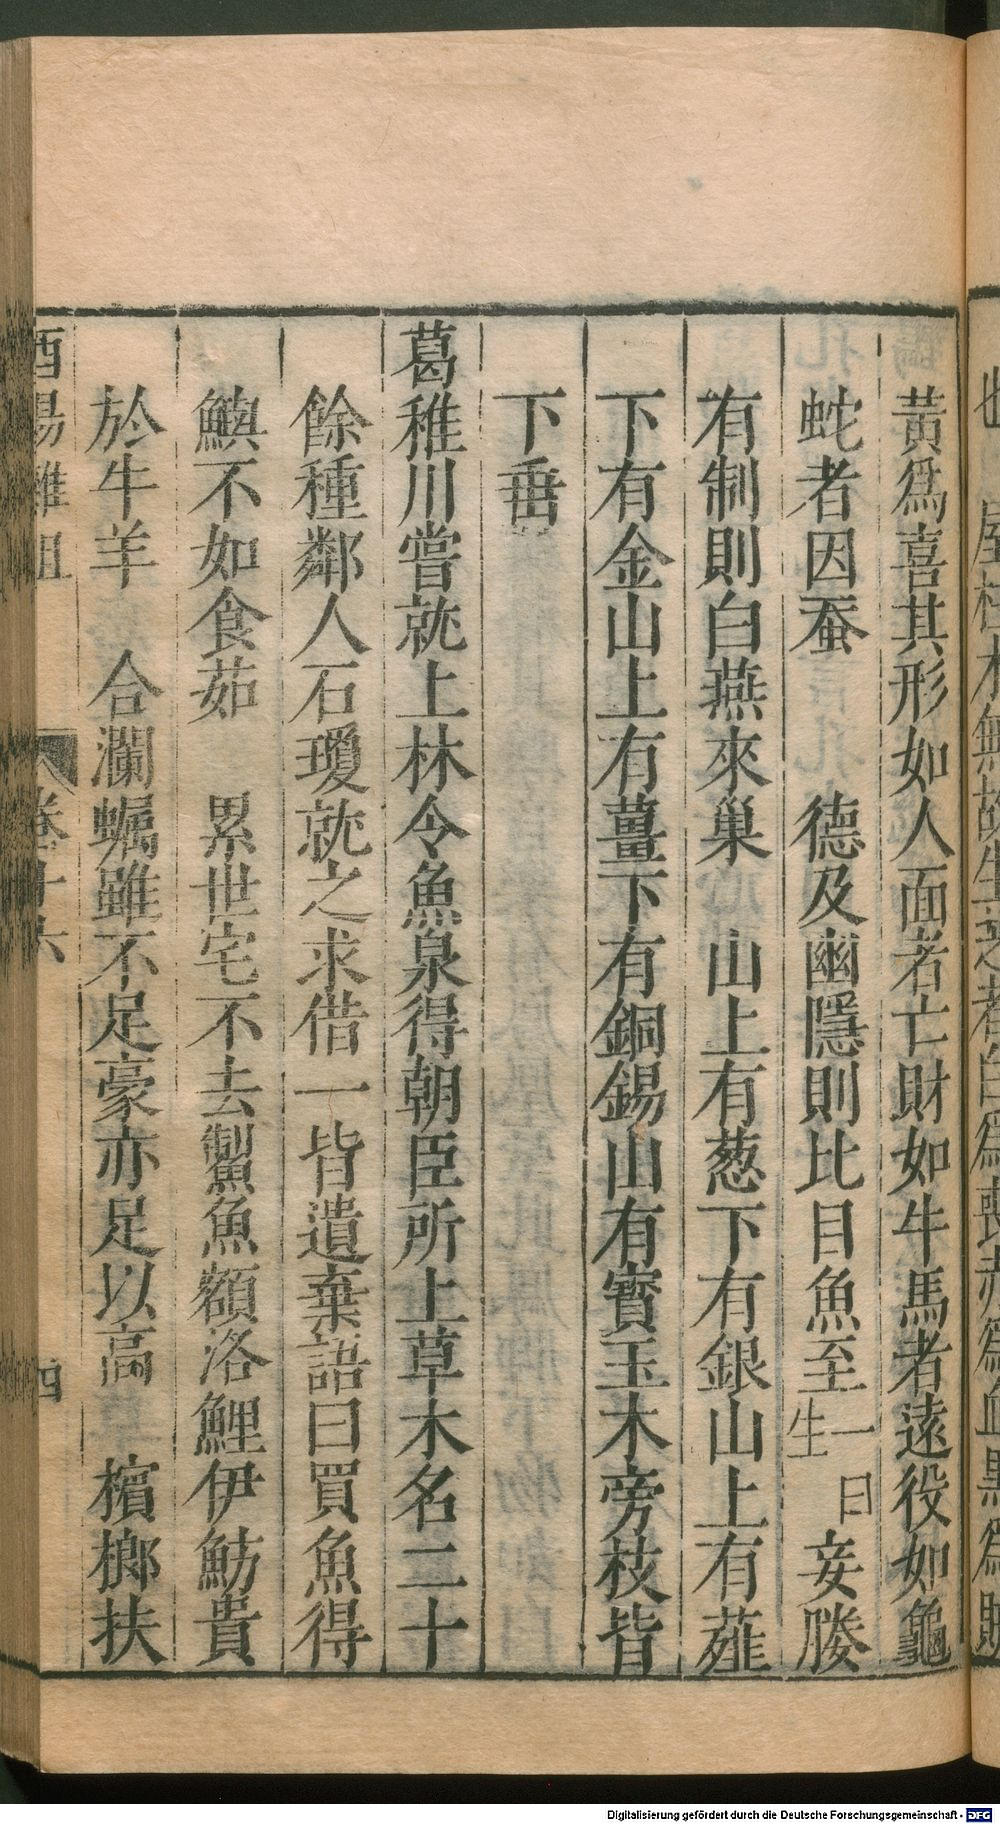 屋柱木無故生芝者白爲喪赤爲血黑爲賊
黃爲喜其形如人面者亡財如牛馬者遠役如龜
蛇者因蚕 德及幽隱則比目魚至一曰生 妾媵
有制則白燕來巢 山上有葱下有銀山上有薤
下有金山上有薑下有銅錫山有寶玉木旁枝皆
下垂
葛稚川嘗就上林令魚泉得朝臣所上草木名二十
餘種鄰人石瓊就之求借一皆遺棄語曰買魚得
鱮不如食茹 累世宅不去鱟魚額洛鯉伊魴貴
於牛羊 合瀾蠣雖不足豪亦足以高 檳榔扶
酉陽雜俎 卷十六 四
Digitalisierung gefördert durch die Deutsche Forschungsgemeinschaft - DFG